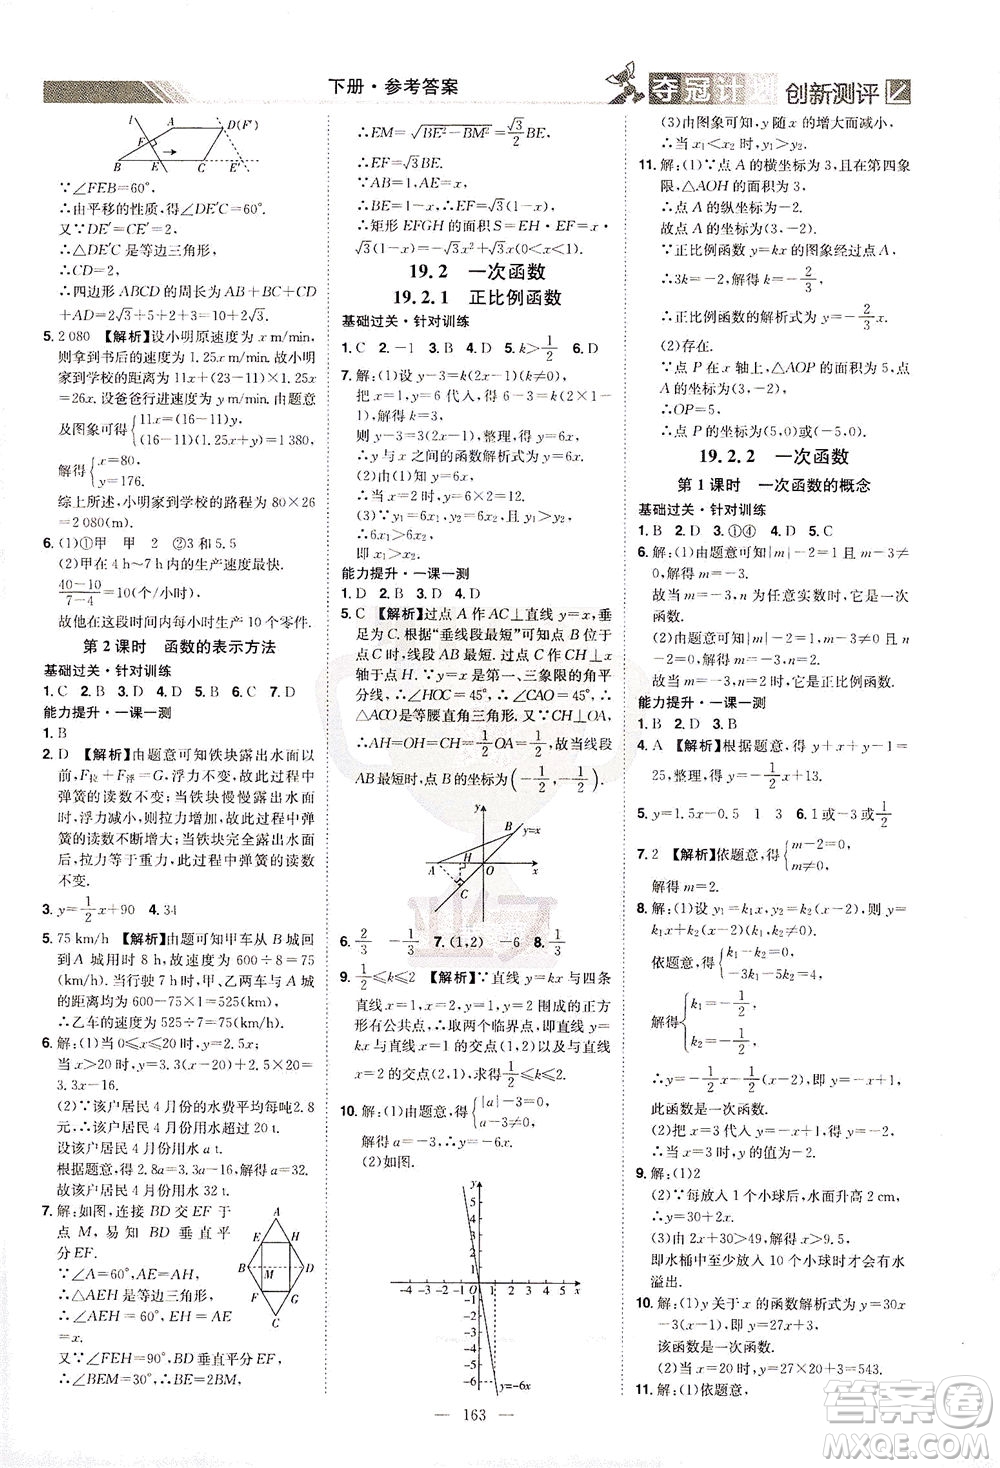 下册·参考答案
夺冠计划 创新测评
l A D(F′)
F
B E C E′
∵∠FEB=60°,
∴由平移的性质,得∠DE′C=60°.
又∵DE′=CE′=2,
∴△DE′C 是等边三角形,
∴DC=2.
∴四边形 ABCD 的周长为 2√3+2+3+
AD=2√3+2+3+2+3=10+2√3.
5. 2 080 【解析】设小明原速度为 x m/min,
则拿到书后的速度为 1.25x m/min. 故小明
家到学校的距离为 11x+(23-11)×1.25x
=26x. 设爸爸行进速度为 y m/min. 由题意
及图象可得{11x=(16-11)y,
(16-11)(1.25x+y)=1 380,
解得{x=80,
y=176.
综上所述,小明家到学校的路程为 80×26
=2 080(m).
6. (1)①甲 甲 2 ②3 和 5.5
(2)甲在 4 h~7 h 内的生产速度最快.
(40-10)/(7-4)=10(个/小时),
故他在这段时间内每小时生产 10 个零件.
第 2 课时 函数的表示方法
基础过关·针对训练
1. C 2. B 3. D 4. D 5. C 6. D
能力提升·一课一测
1. B
2. D 【解析】由题意可知铁块露出水面以
前,F拉+F浮=G,浮力不变,故此过程中
弹簧的读数不变;当铁块慢慢露出水面
时,浮力减小,则拉力增加,故此过程中弹
簧的读数不断增大;当铁块完全露出水面
后,拉力等于重力,故此过程中弹簧的读数
不变.
3. y=1/2x+90 4. 34
5. 75 km/h 【解析】由题可知甲车从 B 城回
到 A 城用时 8 h,故速度为 600÷8=75
(km/h). 当行驶 7 h 时,甲、乙两车与 A 城
的距离均为 600-75=525(km).
∴乙车的速度为 525÷7=75(km/h).
6. 解:(1)当 0≤x≤20 时,y=2.5x;
当 x>20 时,y=3.3(x-20)+2.5×20=
3.3x-16.
(2)∵该户居民 4 月份的水费平均每吨 2.8
元,∴该户居民 4 月份用水超过 20 t.
设该户居民 4 月份用水 a t.
根据题意,得 2.8a=3.3a-16,解得 a=32.
故该户居民 4 月份用水 32 t.
7. 解:如图,连接 BD 交 EF 于
点 M,易知 BD 垂直平
分 EF.
∵∠A=60°,AE=AH,
∴△AEH 是等边三角形,
∴∠AEH=60°,EH=AE
=x.
又∵∠FEH=90°,BD 垂直平分 EF,
∴∠BEM=30°,∴BE=2BM,
A
E H
B M D
F G
C
∴EM=√(BE²-BM²)=√3/2BE,
∴EF=√3BE.
∵AB=1,AE=x,
∴BE=1-x,
∴矩形 EFGH 的面积 S=EH·EF=x·
√3(1-x)=-√3x²+√3x(0<x<1).
19.2 一次函数
19.2.1 正比例函数
基础过关·针对训练
1. C 2. -1 3. B 4. D 5. k>1/2 6. D
7. 解:(1)设 y-3=k(2x-1)(k≠0),
把 x=1,y=6 代入,得 6-3=k(2×1-
1),解得 k=3.
则 y-3=3(2x-1),整理,得 y=6x.
∴y 与 x 之间的函数解析式为 y=6x.
(2)由(1)知 y=6x,
当 x=2 时,y=6×2=12.
(3)∵y₁=6x₁,y₂=6x₂,y₁>y₂,
∴6x₁>6x₂,
即 x₁>x₂.
能力提升·一课一测
1. D 2. B 3. A 4. D
5. C 【解析】过点 A 作 AC⊥直线 y=x,垂
足为 C. 根据“垂线段最短”可知当点 B 与
点 C 重合时,线段 AB 最短. 过点 C 作 CH⊥x
轴于点 H. ∵直线 y=x 是第一、三象限的角平
分线,∴∠HOC=45°,∴∠CAO=45°,
∴△ACO 是等腰直角三角形. 又∵CH⊥OA,
∴AH=OH=CH=1/2OA=1/2,故当线段
AB 最短时,点 B 的坐标为(-1/2,-1/2).
y B y=x
A H O x
C
6. 2/3 -1/3 7. (1,2) -6 8. 1/3
9. 1/2≤k≤2 【解析】∵直线 y=kx 与四条
直线 x=1,x=2,y=1,y=2 围成的正方
形有公共点,∴取两个临界点,即直线 y=
kx 与直线 x=1 和 y=2 的交点(1,2)以及
与直线 x=2 和 y=1 的交点(2,1),得 1/2≤k≤2.
10. 解:(1)由题意,得{|a|-3=0,
a-3≠0,
解得 a=-3,∴y=-6x.
(2)如图.
y
5
4
3
2
1
-4 -3 -2 -1 O 1 2 3 4 5 x
-1
-2
-3
-4
-5
-6
y=-6x
(3)由图象可知,y 随 x 的增大而减小,
∴当 x₁>x₂ 时,y₁<y₂.
11. 解:(1)∵点 A 的横坐标为 3,且在第四象
限,△AOH 的面积为 3,
∴点 A 的纵坐标为-2.
故点 A 的坐标为(3,-2).
∵正比例函数 y=kx 的图象经过点 A,
∴3k=-2,解得 k=-2/3,
∴正比例函数的解析式为 y=-2/3x.
(2)存在.
∵点 P 在 x 轴上,△AOP 的面积为 5,
点 A 的坐标为(3,-2),
∴OP=5,
∴点 P 的坐标为(5,0)或(-5,0).
19.2.2 一次函数
第 1 课时 一次函数的概念
基础过关·针对训练
1. B 2. D 3. ①④ 4. D 5. C
6. 解:(1)由题意可知|m|-2=1,m-3≠
0,解得 m=-3.
故当 m=-3,n 为任意实数时,此函数是
一次函数.
(2)由题意可知|m|-2=1,m-3≠0,n
-2=0,解得 m=-3,n=2,
故当 m=-3,n=2 时,此函数是正比例函数.
能力提升·一课一测
1. B 2. B 3. C
4. A 【解析】根据题意,得 y+1/2x=1/2×
25,整理,得 y=-1/2x+12.5.
5. y=1.5x-0.5 1 3 6. 1 或-1/2或-2
7. 2 【解析】依题意,可得{m-2=0,
n-2=0,
解得 m=2,n=2.
8. 解:(1)设 y₁=k₁x,y₂=k₂(x-2),则 y=
k₁x+k₂(x-2),
依题意,得{k₁-k₂=0,
-3k₁-5k₂=4,
解得{k₁=-1/2,
k₂=-1/2,
∴y=-1/2x-1/2(x-2),即 y=-x+1,
此函数是一次函数.
(2)把 x=3 代入 y=-x+1,得 y=-2,
∴当 x=3 时,y 的值为-2.
9. 解:(1)2
(2)∵每放入 1 个小球后,水面升高 2 cm,
∴y=30+2x.
(3)由 2x+30>49,得 x>9.5,
即水桶中至少放入 10 个小球时才会有水
溢出.
10. 解:(1)y 关于 x 的函数解析式为 y=30x
-3(x-1),即 y=27x+3,
该函数是一次函数.
(2)当 x=20 时,y=27×20+3=543.
11. 解:(1)依题意,
— 163 —
答案圈
MXQE.COM